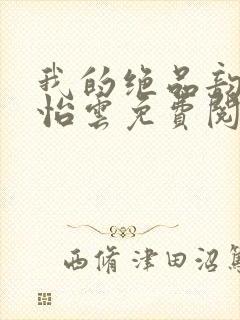 我的绝品
怡雲免費閱
西脩津田沼篤